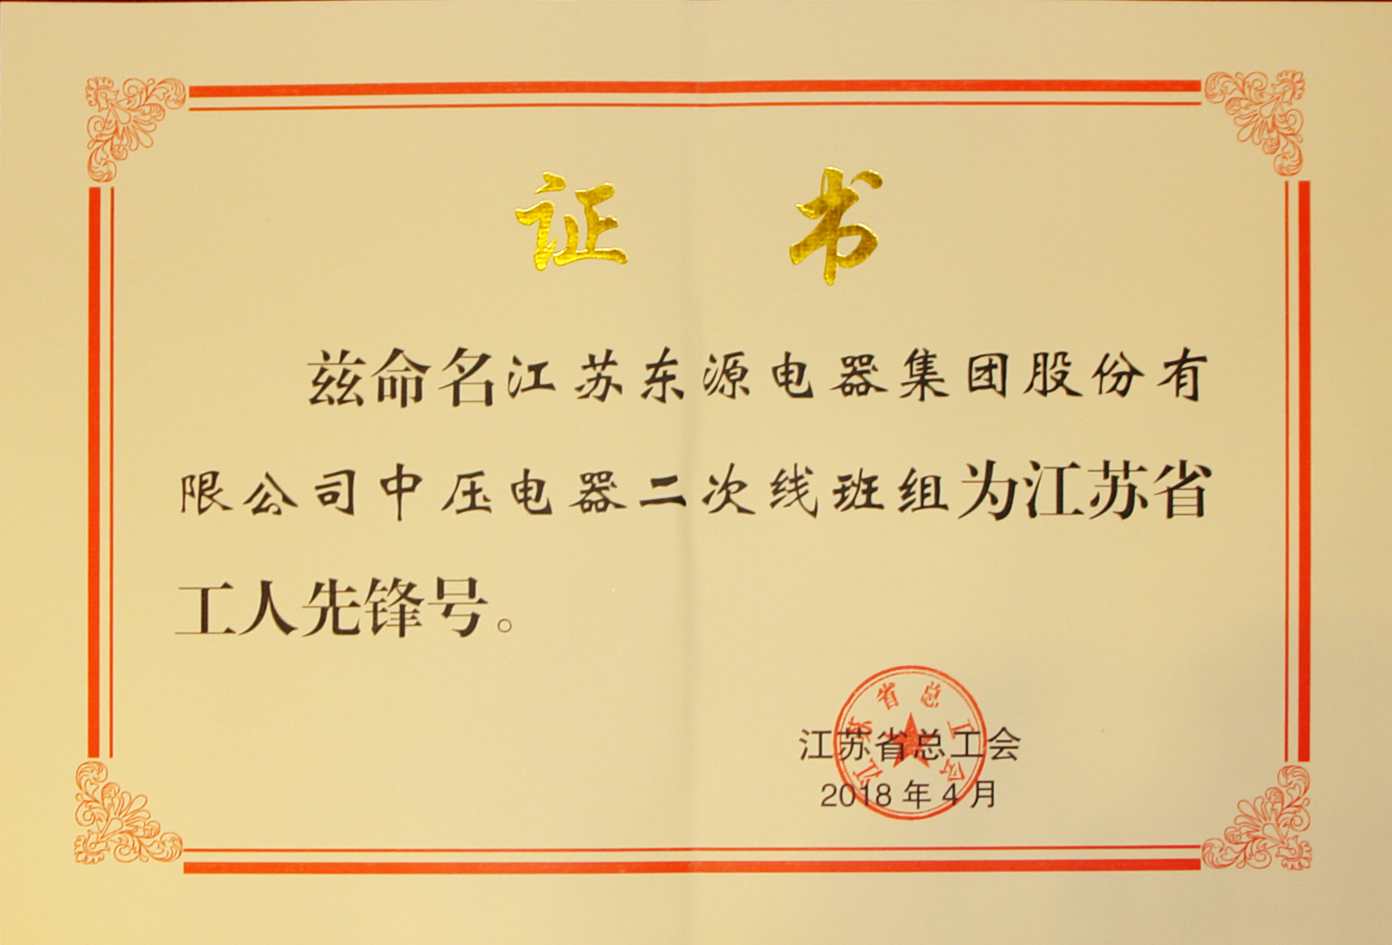 证书
兹命名江苏东源电器集团股份有
限公司中压电器二次线班组为江苏省
工人先锋号。
江苏省总工会
江苏省总工会
2018年4月